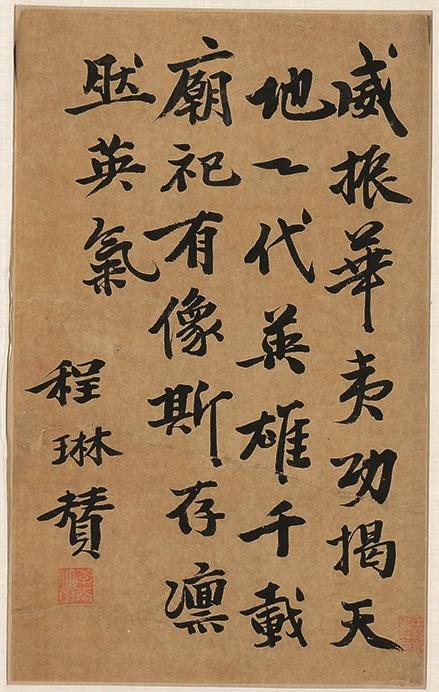 威振華夷功揭天
地一代英雄千載
廟祀有像斯存凛
肰英氣
程琳賛